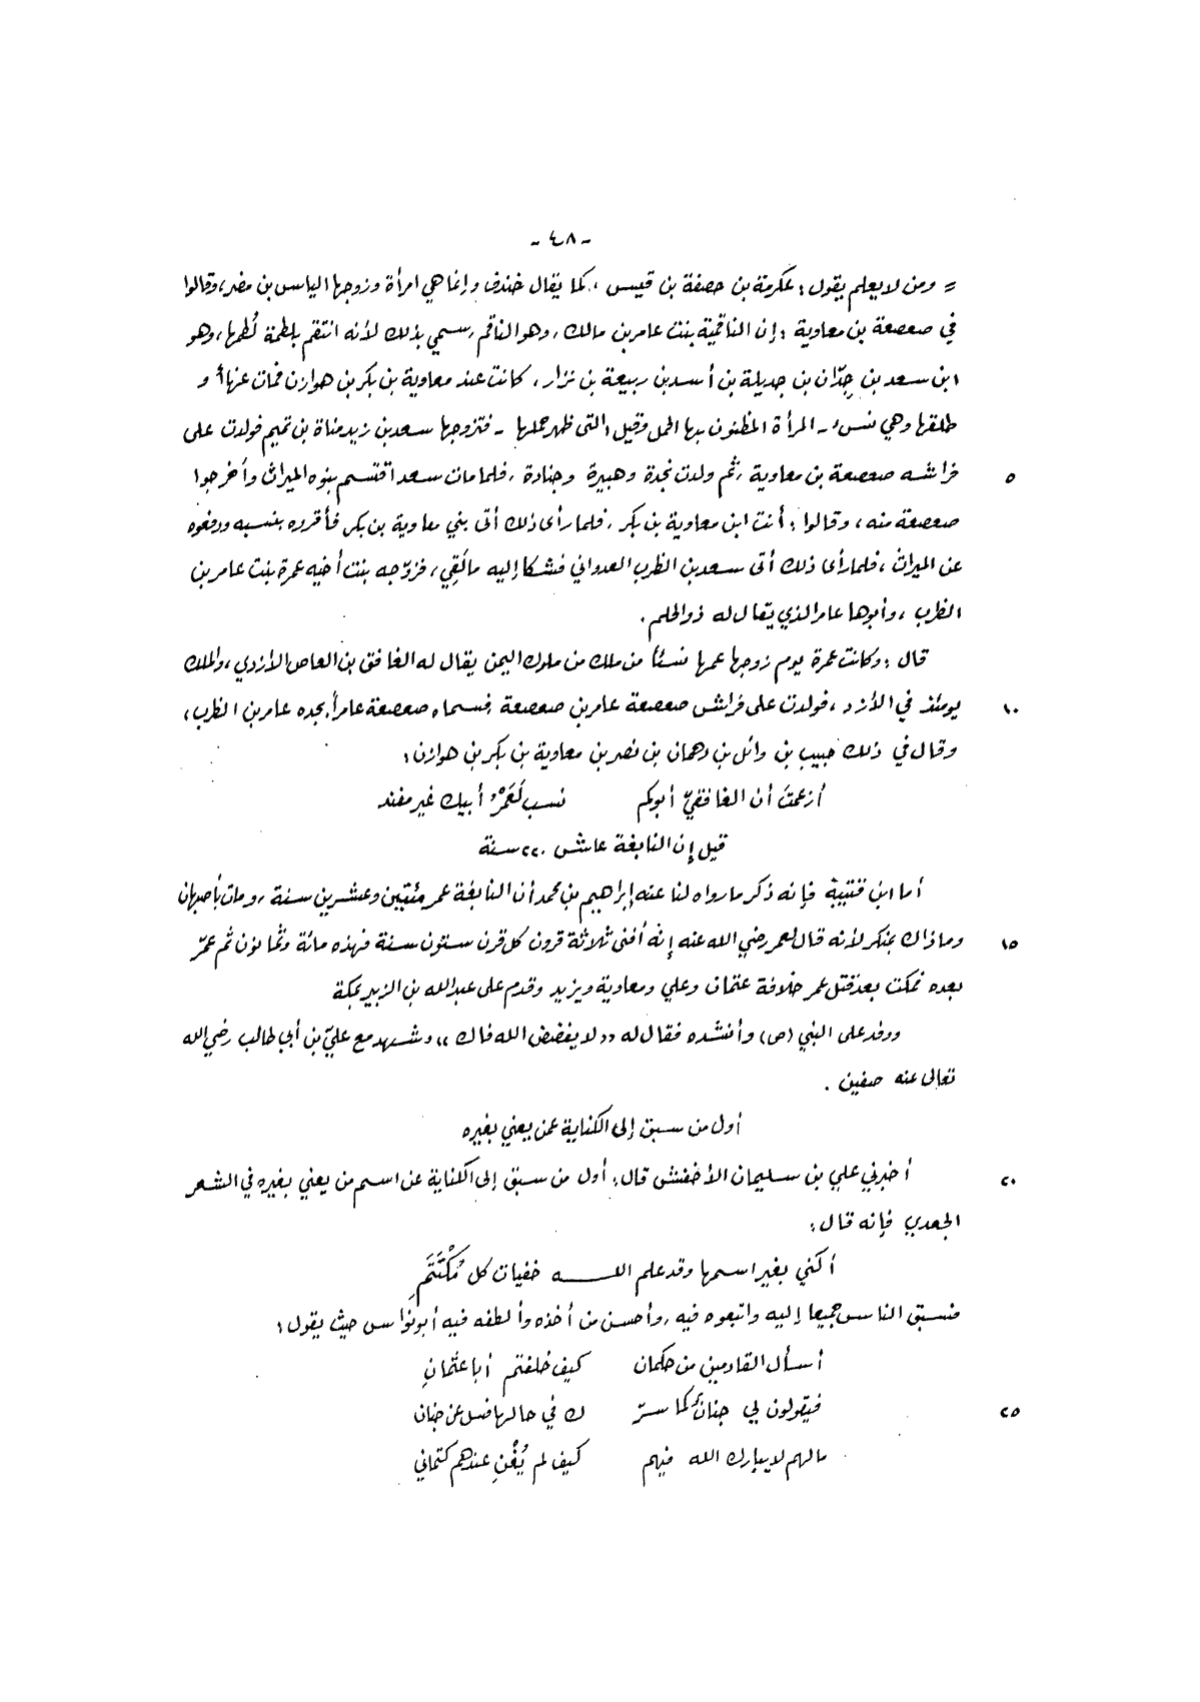 - ٤٨ -
= ومن لا يعلم يقول : عكرمة بن حصفة بن قيس ، كما يقال خندف وإنما هي امرأة وزوجها الياس بن مضر، وقالوا
في صعصعة بن معاوية : إن الناقمية بنت عامر بن مالك، وهو الناقم، سمي بذلك لأنه انتقم بلطمة لُطمها، وهو
ابن سعد بن جدّان بن جديلة بن أسد بن ربيعة بن نزار ، كانت عند معاوية بن بكر بن هوازن فمات عنها أو
طلقها وهي نسء - المرأة المظنون بها الحمل وقيل: التي ظهر حملها - فتزوجها سعد بن زيد مناة بن تميم فولدت على
فراشه صعصعة بن معاوية ، ثم ولدت نجدة وهبيرة وجنادة ، فلما مات سعد اقتسم بنوه الميراث وأخرجوا ٥
صعصعة منه ، وقالوا : أنت ابن معاوية بن بكر ، فلما رأى ذلك أتى بني معاوية بن بكر فأقروه بنسبه ودفعوه
عن الميراث ، فلما رأى ذلك أتى سعد بن الظرب العدواني فشكا إليه ما لقي ، فزوّجه بنت أخيه عمرة بنت عامر بن
الظرب ، وأبوها عامر الذي يقال له ذو الحلم .
قال : وكانت عمرة يوم زوجها عمها نسئاً من ملك من ملوك اليمن يقال له الغافق بن العاص الأزدي ، والملك
يومئذ في الأزد ، فولدت على فراش صعصعة عامر بن صعصعة فسماه صعصعة عامراً بجده عامر بن الظرب ، ١٠
وقال في ذلك حبيب بن وائل بن دهمان بن نصر بن معاوية بن بكر بن هوازن :
أزعمتَ أن الغافقيّ أبوكم نسب لَعَمْرُ أبيك غير مفند
قيل إن النابغة عاش ٢٢٠ سنة
أما ابن قتيبة فإنه ذكر ما رواه لنا عنه إبراهيم بن محمد أن النابغة عمر مئتين وعشرين سنة ، ومات بأصبهان
وما ذاك بمنكر لأنه قال لعمر رضي الله عنه إنه أفنى ثلاثة قرون كل قرن ستون سنة فهذه مائة وثمانون ثم عمّر ١٥
بعده فمكث بعد قتل عمر خلافة عثمان وعلي ومعاوية ويزيد وقدم على عبدالله بن الزبير بمكة
ووفد على النبي (ص) وأنشده فقال له « لا يفضض الله فاك » وشهد مع عليّ بن أبي طالب رضي الله
تعالى عنه صفين .
أول من سبق إلى الكناية عمن يعني بغيره
أخبرني علي بن سليمان الأخفش قال: أول من سبق إلى الكناية عن اسم من يعني بغيره في الشعر ٢٠
الجعدي فإنه قال :
أكني بغير اسمها وقد علم اللـــه خفيات كل مُكْتَتَمِ
فسبق الناس جميعا إليه واتبعوه فيه ، وأحسن من أخذه وألطفه فيه أبو نواس حيث يقول :
أسأل القادمين من حكمان كيف خلفتم أبا عثمانِ
فيقولون لي جنانٌ كما سرّ ك في حالها فسل عن جنان ٢٥
مالهم لا يبارك الله فيهم كيف لم يُغْنِ عندهم كتماني